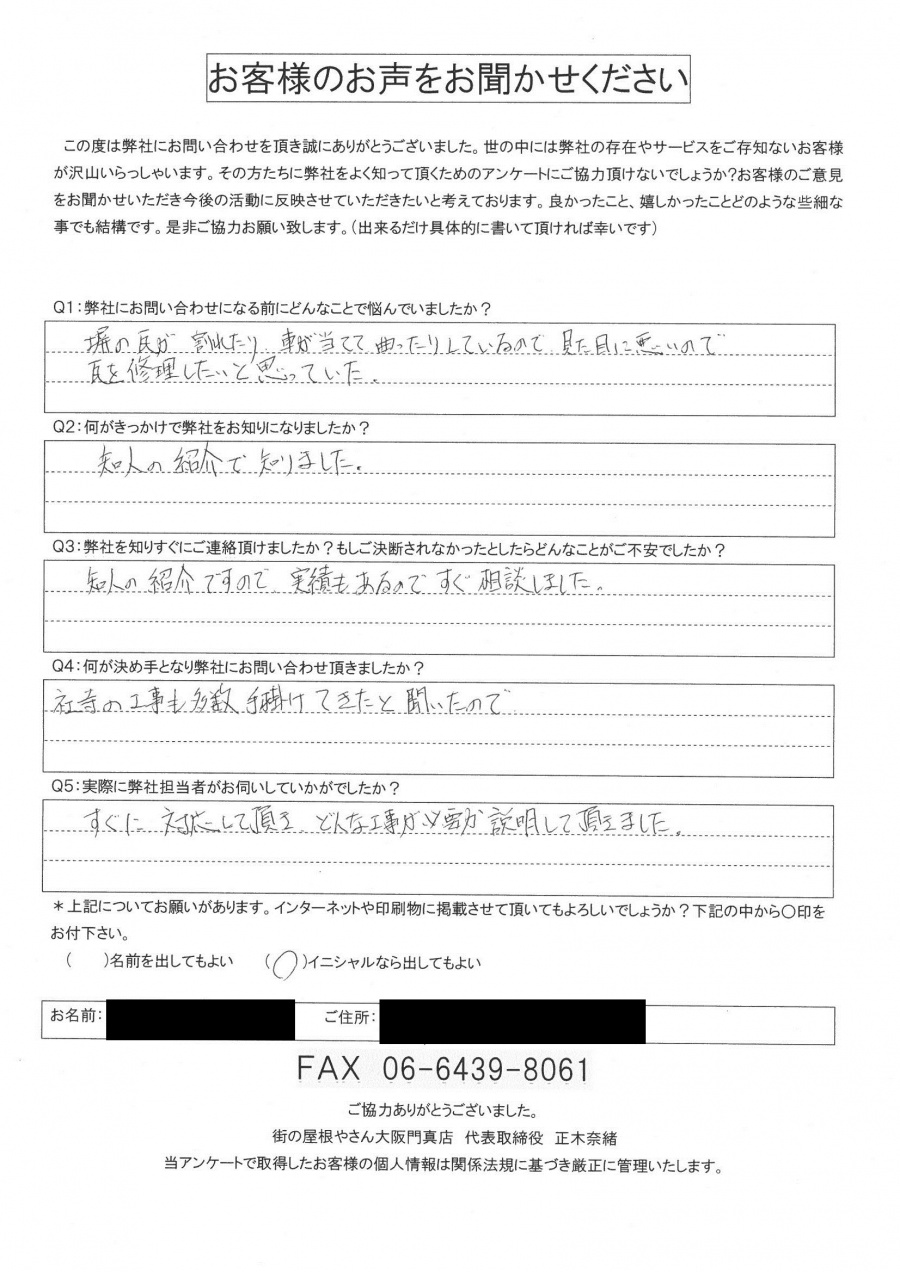 お客様のお声をお聞かせください
この度は弊社にお問い合わせを頂き誠にありがとうございました。世の中には弊社の存在やサービスをご存知ないお客様
が沢山いらっしゃいます。その方たちに弊社をよく知って頂くためのアンケートにご協力頂けないでしょうか？お客様のご意見
をお聞かせいただき今後の活動に反映させていただきたいと考えております。良かったこと、嬉しかったことどのような些細な
事でも結構です。是非ご協力お願い致します。（出来るだけ具体的に書いて頂ければ幸いです）
Q1：弊社にお問い合わせになる前にどんなことで悩んでいましたか？
塀の瓦が割れたり、車が当てて曲ったりしているので見た目に悪いので
瓦を修理したいと思っていた。
Q2：何がきっかけで弊社をお知りになりましたか？
知人の紹介で知りました。
Q3：弊社を知りすぐにご連絡頂けましたか？もしご決断されなかったとしたらどんなことがご不安でしたか？
知人の紹介ですので、実績もあるのですぐ相談しました。
Q4：何が決め手となり弊社にお問い合わせ頂きましたか？
社寺の工事も多数手掛けてきたと聞いたので
Q5：実際に弊社担当者がお伺いしていかがでしたか？
すぐに対応して頂き、どんな工事が必要か説明して頂きました。
＊上記についてお願いがあります。インターネットや印刷物に掲載させて頂いてもよろしいでしょうか？下記の中から〇印を
お付下さい。
（　）名前を出してもよい　（〇）イニシャルなら出してもよい
お名前：　ご住所：
FAX 06-6439-8061
ご協力ありがとうございました。
街の屋根やさん大阪門真店 代表取締役 正木奈緒
当アンケートで取得したお客様の個人情報は関係法規に基づき厳正に管理いたします。